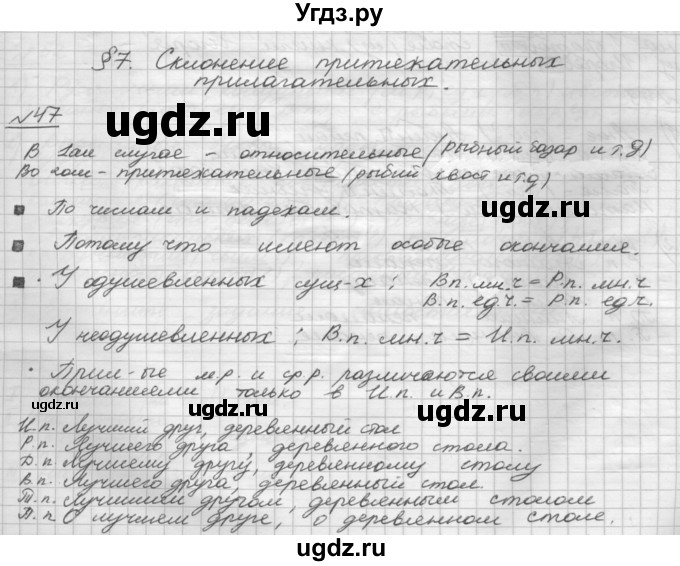 Угдз.ру
§7. Склонение притяжательных
прилагательных.
№47
В 1ом случае – относительные (рыбный базар и т.д)
Во 2ом – притяжательные (рыбий хвост и т.д)
По числам и падежам.
Потому что имеют особые окончания.
· У одушевленных сущ-х ; В.п. мн.ч = Р.п. мн.ч
В.п. ед.ч. = Р.п. ед.ч.
У неодушевленных ; В.п. мн.ч = И.п. мн.ч.
· Прил-ые м.р. и ср.р. различаются своими
окончаниями только в И.п. и В.п.
И.п. Лучший друг, деревянный стол
Р.п. Лучшего друга, деревянного стола.
Д.п Лучшему другу, деревянному столу
В.п. Лучшего друга, деревянный стол.
Т.п. Лучшим другом, деревянным столом
П.п О лучшем друге, о деревянном столе.
ugdz.ru
ugdz.ru
ugdz.ru
ugdz.ru
ugdz.ru
ugdz.ru
ugdz.ru
ugdz.ru